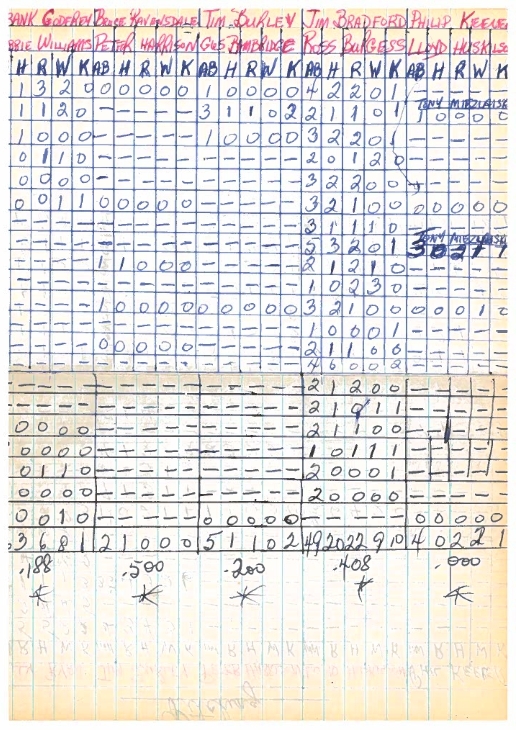 ANK GODFREY BRUCE RAVENSDALE TIM BURLEY JIM BRADFORD PHILIP KEELE
BBIE WILLIAMS PETER HARRISON GUS BAMBRIDGE ROSS BURGESS LLOYD HUSKILSO
H R W K AB H R W K AB H R W K AB H R W K AB H R W K
1 3 2 0 0 0 0 0 0 1 0 0 0 0 4 2 2 0 1
TONY MIEZLAISK
1 1 2 0 - - - - - 3 1 1 0 2 2 1 1 0 1 1 0 0 0 0
1 0 0 0 - - - - - 1 0 0 0 0 3 2 2 0 1 - - - - -
0 1 1 0 - - - - - - - - - - 2 0 1 2 0 - - - - -
0 0 0 0 - - - - - - - - - - 3 2 2 0 0 - - - -
0 0 1 1 0 0 0 0 0 - - - - - 3 2 1 0 0 0 0 0 0 0
- - - - - - - - - - - - - - 3 1 1 1 0 - - - - -
TONY MIEZLAISK
- - - - - - - - - - - - - - 5 3 2 0 1 3 0 2 1 1
- - - - 1 1 0 0 0 - - - - - 2 1 2 1 0 - - - - -
- - - - - - - - - - - - - - 1 0 2 3 0 - - - - -
- - - - 1 0 0 0 0 0 0 0 0 0 3 2 1 0 0 0 0 0 1 0
- - - - - - - - - - - - - - 1 0 0 0 1 - - - - -
- - - - 0 0 0 0 0 - - - - - 2 1 1 0 0 - - - - -
- - - - - - - - - - - - - - 4 0 0 0 2 - - - - -
- - - - - - - - - - - - - - 2 1 2 0 0 - - - - -
- - - - - - - - - - - - - - 2 1 0 1 1 - - - - -
0 0 0 0 - - - - - - - - - - 2 1 1 0 0 - - - -
0 0 0 0 - - - - - - - - - - 1 0 1 1 1 - - - -
0 1 1 0 - - - - - - - - - - 2 0 0 0 1 - - - - -
0 0 0 0 - - - - - - - - - - 2 0 0 0 0 - - - - -
- - - - - - - - - - - - - - - - - - - - - - - -
0 0 1 0 - - - - - 0 0 0 0 0 - - - - - 0 0 0 0 0
3 6 8 1 2 1 0 0 0 5 1 1 0 2 49 20 22 9 10 4 0 2 2 1
.188 .500 .200 .408 .000